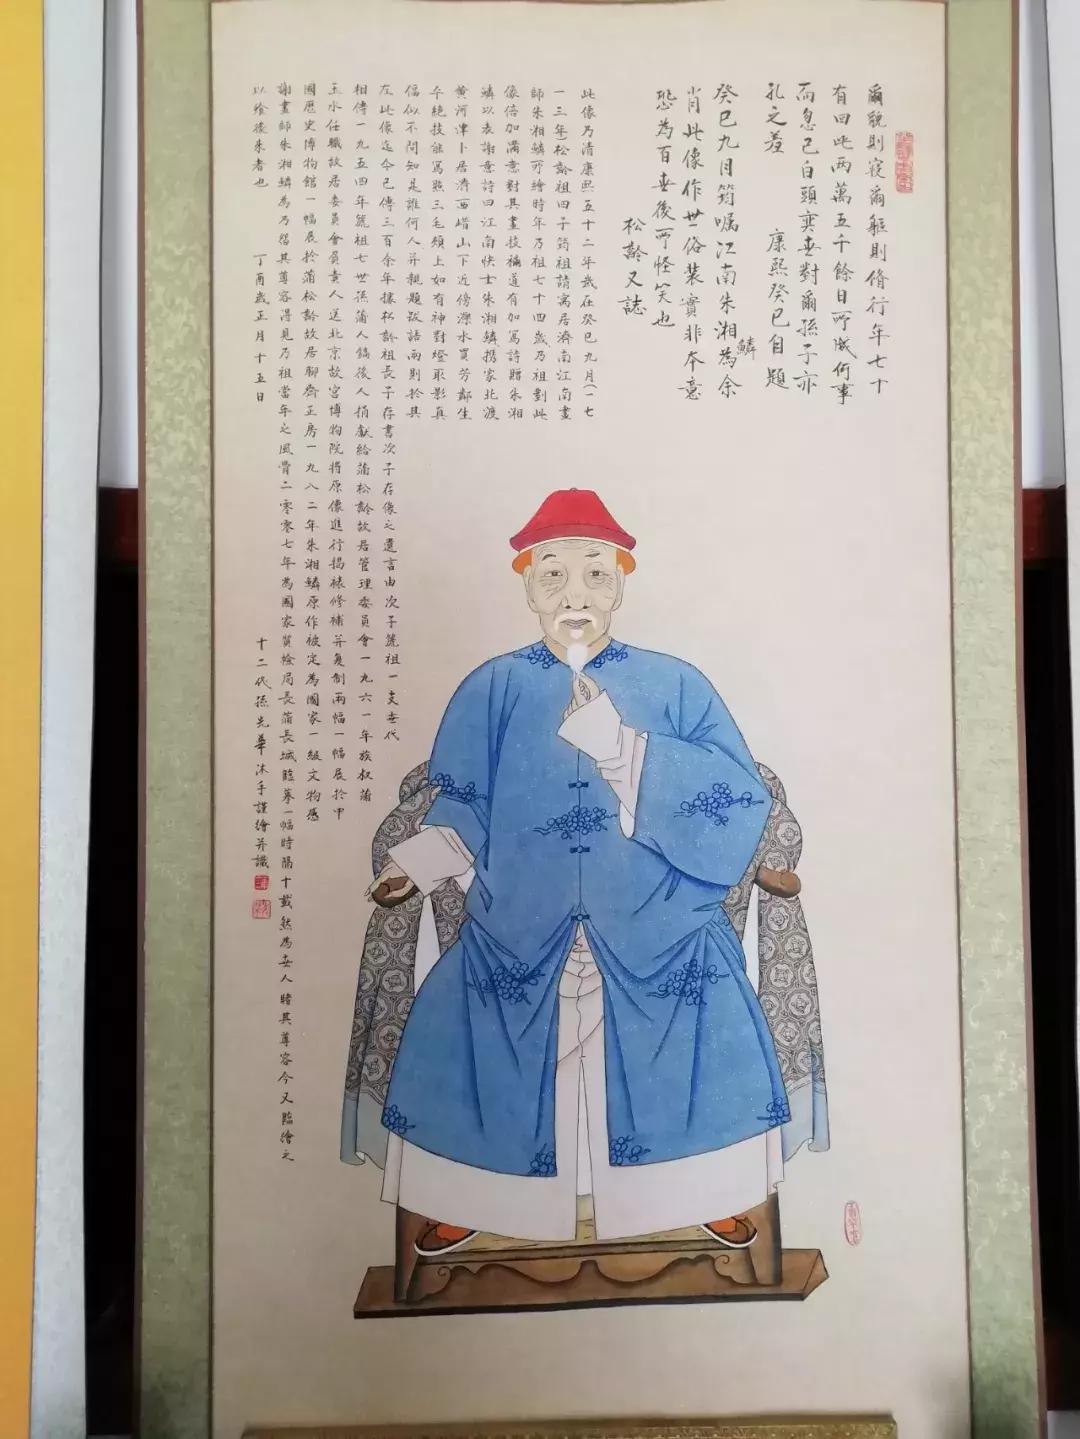 爾貌則寢爾軀則脩行年七十
有四此兩萬五千餘日所成何事
而忽已白頭奕世對爾孫子亦
孔之羞
康熙癸巳自題
癸巳九月筠囑江南朱湘鱗為余
肖此像作世俗裝實非本意
恐為百世後所怪笑也
松齡又誌
此像乃清康熙五十二年歲在癸巳九月(一七
一三年)松齡祖四子筠祖請寓居濟南江南畫
師朱湘鱗所繪時年乃祖七十四歲乃祖對此
像倍加滿意對其畫技稱道有加寫詩贈朱湘
鱗以表謝意詩曰江南快士朱湘鱗攜家北渡
黃河津卜居濟西崢山下近傍濼水買芳鄰生
平絕技能寫照三毛頰上如有神對燈取影真
逼似不問知是誰何人并親題跋語兩則於其
左此像迄今已傳三百余年據松齡祖長子存書次子存像之遺言由次子箎祖一支世代
相傳一九五四年箎祖七世孫蒲人鎬後人捐獻給蒲松齡故居管理委員會一九六一年族叔蒲
玉水任職故居委員會負責人送北京故宮博物院將原像進行揭裱修補并复制兩幅一幅展於中
國歷史博物館一幅展於蒲松齡故居聊齋正房一九八二年朱湘鱗原作被定為國家一級文物感
謝畫師朱湘鱗為乃祖其尊容得見乃祖當年之風骨二零零七年為國家質檢局長蒲長城臨摹一幅時隔十載然為世人睹其尊容今又臨繪之
以飨後来者也
丁酉歲正月十五日
十二代孫先華沐手謹繪并識